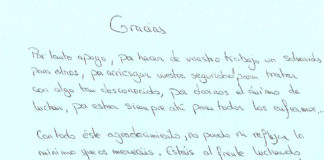 Gracias
Por tanto apoyo, por hacer de vuestro trabajo un salvavidas
para otros, por arriesgar vuestra seguridad para tratar
con algo tan desconocido, por darnos el ánimo de
luchar, por estar siempre ahí para todos los enfermos...
Con todo éste agradecimiento, no puedo ni reflejar lo
mínimo que os merecéis. Estáis al frente luchando